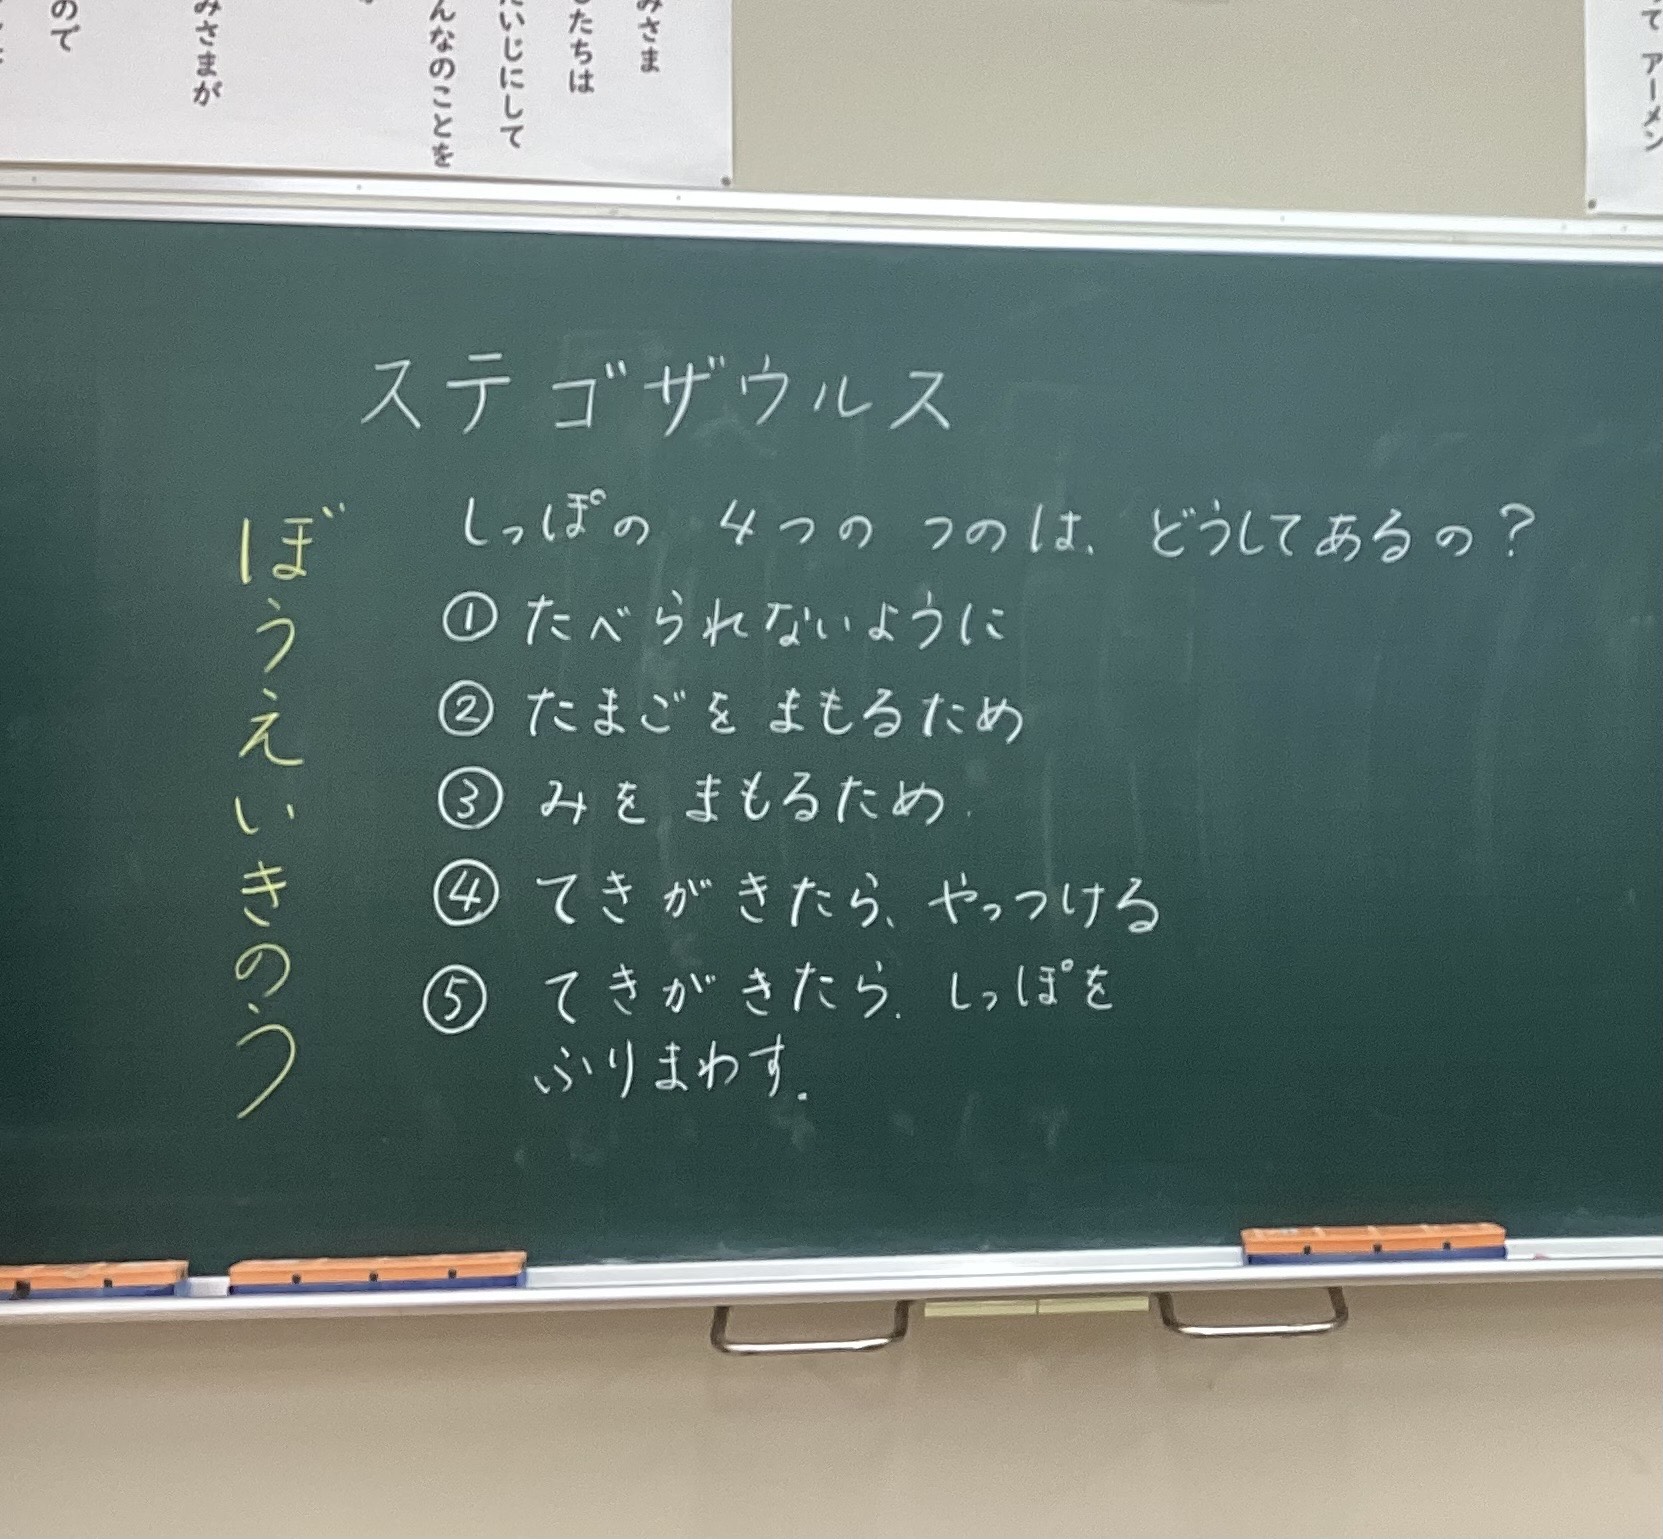 みさま
たちは
いじにして
んなのことを
みさまが
ので
て アーメン
ステゴザウルス
しっぽの 4つの つのは、どうしてあるの？
① たべられないように
② たまごを まもるため
③ みを まもるため
④ てきがきたら、やっつける
⑤ てきがきたら、しっぽを
ふりまわす。
ぼうえいきのう